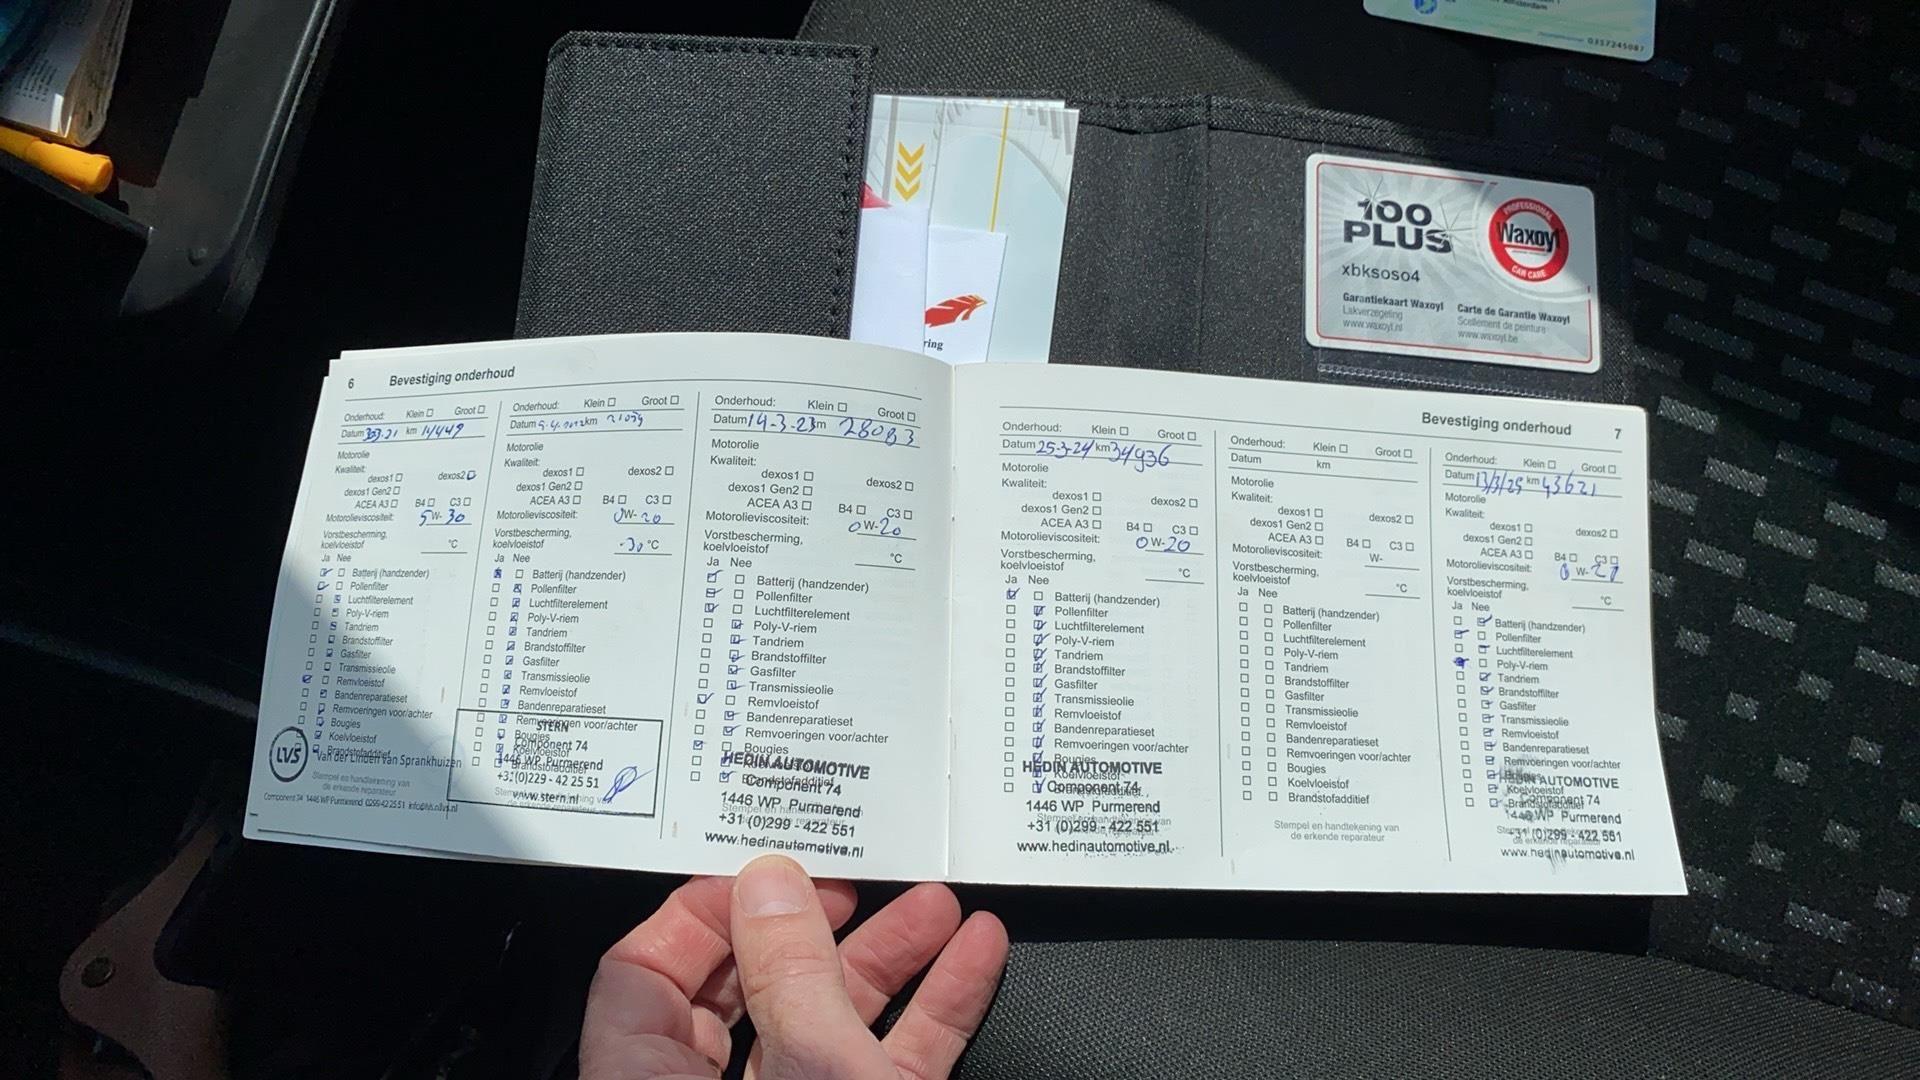 Amsterdam
0357245087
100
PLUS
PROFESSIONAL
Waxoyl
CAR CARE
xbksoso4
Garantiekaart Waxoyl
Lakverzegeling
www.waxoyl.nl
Carte de Garantie Waxoyl
Scellement de peinture
www.waxoyl.be
ring
6 Bevestiging onderhoud
Onderhoud: Klein Groot
Datum km 14449
Motorolie
Kwaliteit:
dexos1 dexos2
dexos1 Gen2
ACEA A3 B4 C3
Motorolieviscositeit: 5W-30
Vorstbescherming,
koelvloeistof °C
Ja Nee
Batterij (handzender)
Pollenfilter
Luchtfilterelement
Poly-V-riem
Tandriem
Brandstoffilter
Gasfilter
Transmissieolie
Remvloeistof
Bandenreparatieset
Remvoeringen voor/achter
Bougies
Koelvloeistof
Brandstofadditief
LVS
Van der Linden van Sprankhuizen
Stempel en handtekening van
de erkende reparateur
Component 74 1446 WP Purmerend 0299 42 25 51
Onderhoud: Klein Groot
Datum km 21054
Motorolie
Kwaliteit:
dexos1 dexos2
dexos1 Gen2
ACEA A3 B4 C3
Motorolieviscositeit: 0W-20
Vorstbescherming,
koelvloeistof -30 °C
Ja Nee
Batterij (handzender)
Pollenfilter
Luchtfilterelement
Poly-V-riem
Tandriem
Brandstoffilter
Gasfilter
Transmissieolie
Remvloeistof
Bandenreparatieset
Remvoeringen voor/achter
Bougies
Koelvloeistof
Brandstofadditief
STERN
Component 74
1446 WP Purmerend
+31(0)229 - 42 25 51
www.stern.nl
Stempel en handtekening van
de erkende reparateur
Onderhoud: Klein Groot
Datum 14-3-23 km 28083
Motorolie
Kwaliteit:
dexos1 dexos2
dexos1 Gen2
ACEA A3 B4 C3
Motorolieviscositeit: 0W-20
Vorstbescherming,
koelvloeistof °C
Ja Nee
Batterij (handzender)
Pollenfilter
Luchtfilterelement
Poly-V-riem
Tandriem
Brandstoffilter
Gasfilter
Transmissieolie
Remvloeistof
Bandenreparatieset
Remvoeringen voor/achter
Bougies
Koelvloeistof
Brandstofadditief
HEDIN AUTOMOTIVE
Component 74
1446 WP Purmerend
Stempel en handtekening van
+31 (0)299 - 422 551
de erkende reparateur
www.hedinautomotive.nl
Bevestiging onderhoud 7
Onderhoud: Klein Groot
Datum 25-3-24 km 34936
Motorolie
Kwaliteit:
dexos1 dexos2
dexos1 Gen2
ACEA A3 B4 C3
Motorolieviscositeit: 0W-20
Vorstbescherming,
koelvloeistof °C
Ja Nee
Batterij (handzender)
Pollenfilter
Luchtfilterelement
Poly-V-riem
Tandriem
Brandstoffilter
Gasfilter
Transmissieolie
Remvloeistof
Bandenreparatieset
Remvoeringen voor/achter
Bougies
Koelvloeistof
Brandstofadditief
HEDIN AUTOMOTIVE
Component 74
1446 WP Purmerend
Stempel en handtekening van
+31 (0)299 - 422 551
de erkende reparateur
www.hedinautomotive.nl
Onderhoud: Klein Groot
Datum km
Motorolie
Kwaliteit:
dexos1 dexos2
dexos1 Gen2
ACEA A3 B4 C3
Motorolieviscositeit: W-
Vorstbescherming,
koelvloeistof °C
Ja Nee
Batterij (handzender)
Pollenfilter
Luchtfilterelement
Poly-V-riem
Tandriem
Brandstoffilter
Gasfilter
Transmissieolie
Remvloeistof
Bandenreparatieset
Remvoeringen voor/achter
Bougies
Koelvloeistof
Brandstofadditief
Stempel en handtekening van
de erkende reparateur
Onderhoud: Klein Groot
Datum 13/3/25 km 43621
Motorolie
Kwaliteit:
dexos1 dexos2
dexos1 Gen2
ACEA A3 B4 C3
Motorolieviscositeit: 0 W-
Vorstbescherming,
koelvloeistof °C
Ja Nee
Batterij (handzender)
Pollenfilter
Luchtfilterelement
Poly-V-riem
Tandriem
Brandstoffilter
Gasfilter
Transmissieolie
Remvloeistof
Bandenreparatieset
Remvoeringen voor/achter
Bougies
Koelvloeistof
Brandstofadditief
HEDIN AUTOMOTIVE
Component 74
1446 WP Purmerend
+31 (0)299 - 422 551
de erkende reparateur
www.hedinautomotive.nl